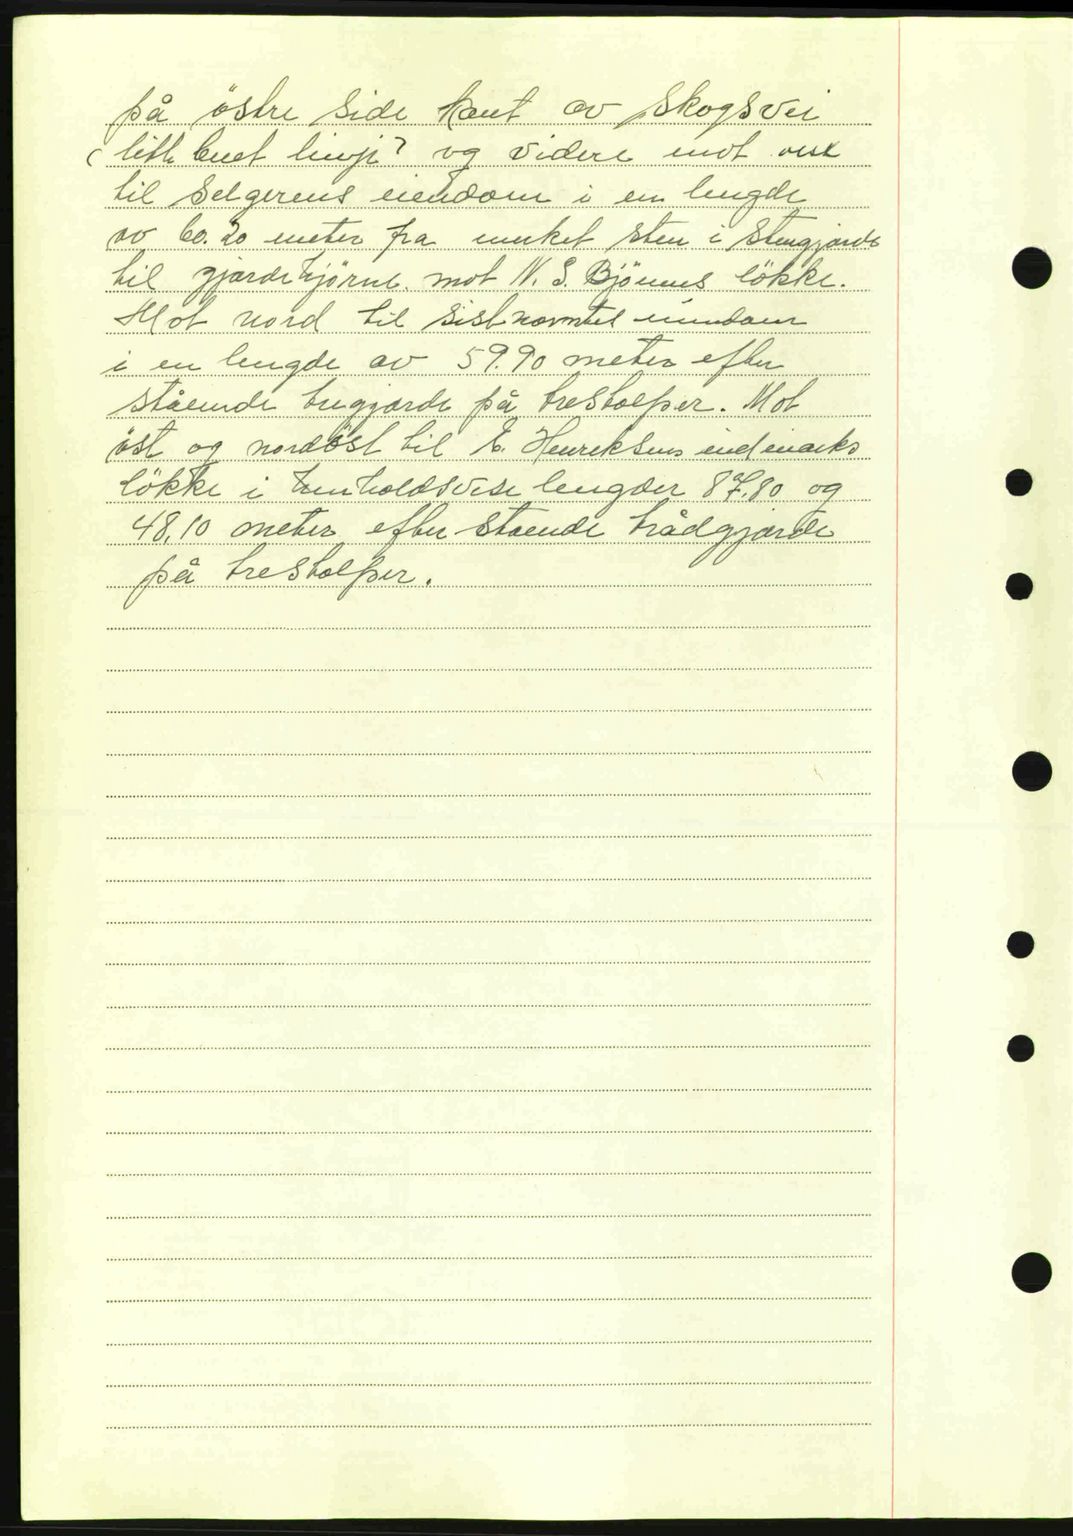 på östre side kant av skogsvei
(litt buet linje) og videre mot vest
til selgerens eiendom i en lengde
av 60.20 meter fra merket sten i stengjærde
til gjærdehjörne mot N. S. Bjönnes lökke.
Mot nord til sistnævntes eiendom
i en lengde av 59.90 meter efter
stående trægjærde på trestolper. Mot
öst og nordöst til E. Henriksens indmarks
lökke i henholdsvise lengder 87,80 og
48,10 meter efter stående trådgjærde
på trestolper.